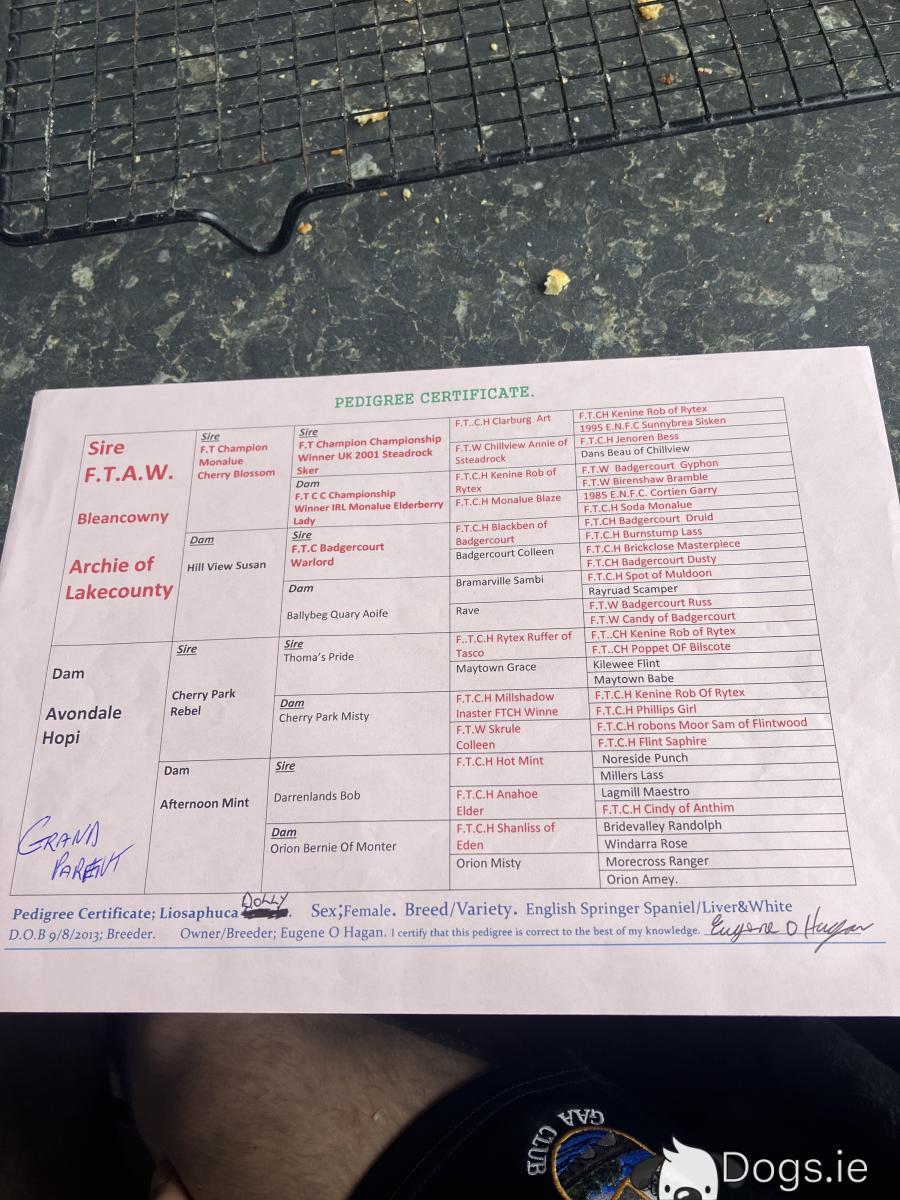 PEDIGREE CERTIFICATE.
Sire
F.T.A.W.
Bleancowny
Archie of
Lakecounty
Dam
Avondale
Hopi
GRAND
PARENT
Sire
F.T Champion
Monalue
Cherry Blossom
Dam
Hill View Susan
Sire
Cherry Park
Rebel
Dam
Afternoon Mint
Sire
F.T Champion Championship
Winner UK 2001 Steadrock
Sker
Dam
F.T C C Championship
Winner IRL Monalue Elderberry
Lady
Sire
F.T.C Badgercourt
Warlord
Dam
Ballybeg Quary Aoife
Sire
Thoma's Pride
Dam
Cherry Park Misty
Sire
Darrenlands Bob
Dam
Orion Bernie Of Monter
F.T..C.H Clarburg Art
F.T.W Chillview Annie of
Ssteadrock
F.T.C.H Kenine Rob of
Rytex
F.T.C.H Monalue Blaze
F.T.C.H Blackben of
Badgercourt
Badgercourt Colleen
Bramarville Sambi
Rave
F..T.C.H Rytex Ruffer of
Tasco
Maytown Grace
F.T.C.H Millshadow
Inaster FTCH Winne
F.T.W Skrule
Colleen
F.T.C.H Hot Mint
F.T.C.H Anahoe
Elder
F.T.C.H Shanliss of
Eden
Orion Misty
F.T.CH Kenine Rob of Rytex
1995 E.N.F.C Sunnybrea Sisken
F.T.C.H Jenoren Bess
Dans Beau of Chillview
F.T.W Badgercourt Gyphon
F.T.W Birenshaw Bramble
1985 E.N.F.C. Cortien Garry
F.T.C.H Soda Monalue
F.T.CH Badgercourt Druid
F.T.C.H Burnstump Lass
F.T.C.H Brickclose Masterpiece
F.T.CH Badgercourt Dusty
F.T.C.H Spot of Muldoon
Rayruad Scamper
F.T.W Badgercourt Russ
F.T.W Candy of Badgercourt
F.T..CH Kenine Rob of Rytex
F.T..CH Poppet OF Bilscote
Kilewee Flint
Maytown Babe
F.T.C.H Kenine Rob Of Rytex
F.T.C.H Phillips Girl
F.T.C.H robons Moor Sam of Flintwood
F.T.C.H Flint Saphire
Noreside Punch
Millers Lass
Lagmill Maestro
F.T.C.H Cindy of Anthim
Bridevalley Randolph
Windarra Rose
Morecross Ranger
Orion Amey.
DOLLY
Pedigree Certificate; Liosaphuca . Sex;Female. Breed/Variety. English Springer Spaniel/Liver&White
D.O.B 9/8/2013; Breeder. Owner/Breeder; Eugene O Hagan. I certify that this pedigree is correct to the best of my knowledge. Eugene O Hagan
GAA CLUB
Dogs.ie